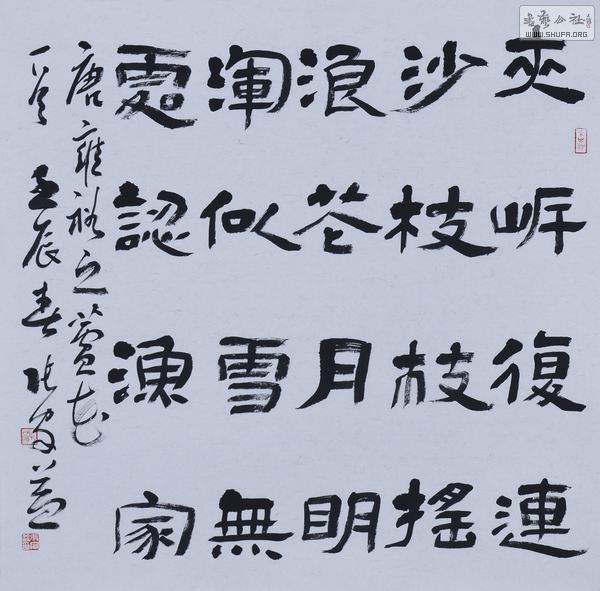 夾岸復連
沙枝枝搖
浪花月明
渾似雪無
處認漁家
唐雍裕之蘆花
一首 壬辰春
書法公社
WWW.SHUFA.ORG